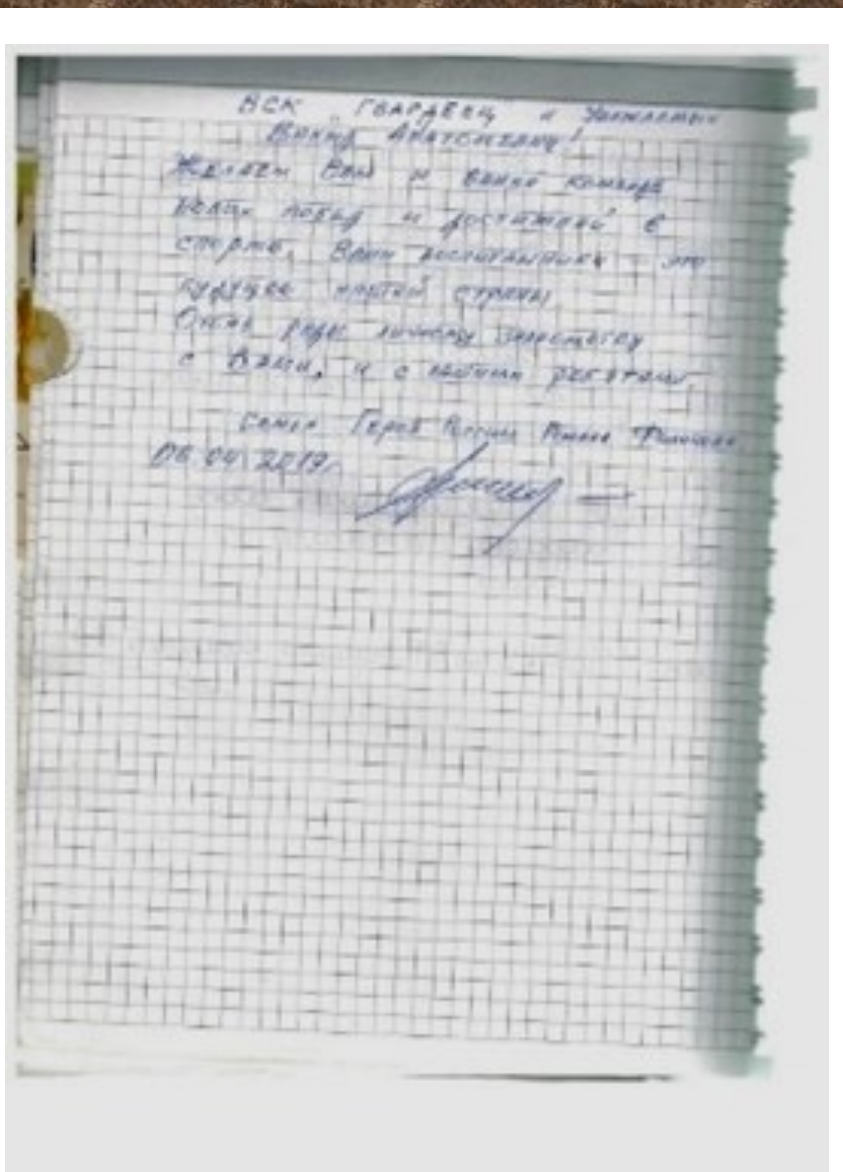 ВСК "Гвардеец" и Уважаемый
Анатольевич!
Желаем Вам и Вашей команде
новых побед и достижений в
спорте. Ваши воспитанники - это
будущее нашей страны.
Очень рады личному знакомству
с Вами, и с Вашими ребятами.
Семья Героя России Романа Филипова
06.04.2019г.